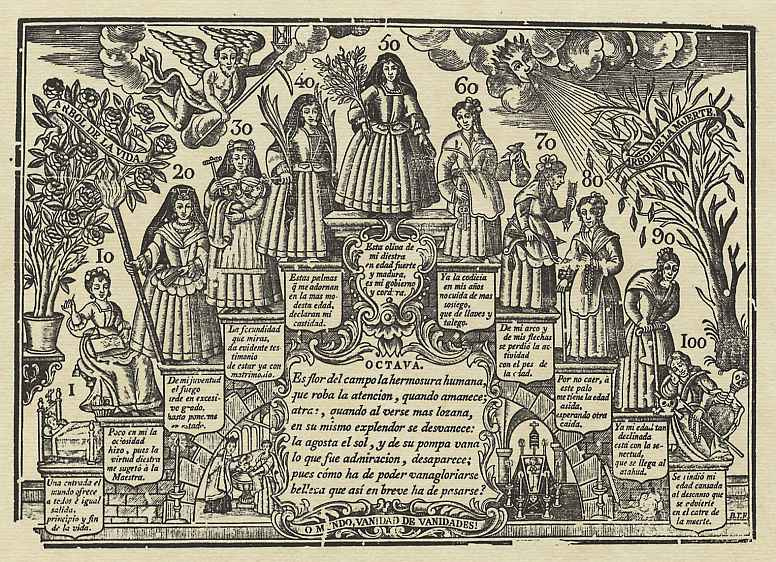 ARBOL DE LA VIDA
ARBOL DE LA MUERTE
1
10
20
30
40
50
60
70
80
90
100
Una entrada el
mundo ofrece
a todos è igual
salida,
principio y fin
de la vida.
Poco en mi la
ociosidad
hizo, pues la
virtud diestra
me sugetó à la
Maestra.
De mi juventud
el fuego
arde en excesi-
vo grado,
hasta ponerme
en estado.
La fecundidad
que miras,
da evidente tes
timonio
de estar ya con
matrimonio.
Estas palmas
q̃ me adornan
en la mas mo-
desta edad,
declaran mi
castidad.
Esta oliva de
mi diestra
en edad fuerte
y madura,
es mi gobierno
y cordura.
Ya la codicia
en mis años
no cuida de mas
sosiego,
que de llaves y
talego.
De mi arco y
de mis flechas
se perdió la ac-
tividad
con el pes de
la edad.
Por no caer, à
este palo
me tiene la edad
asida,
esperando otra
caida.
Ya mi edad tan
declinada
está con la se-
nectud,
que se llega al
atahud.
Se rindió mi
edad cansada
al descanso que
se advierte
en el catre de
la muerte.
OCTAVA.
Es flor del campo la hermosura humana,
que roba la atencion, quando amanece;
atrae, quando al verse mas lozana,
en su mismo explendor se desvanece:
la agosta el sol, y de su pompa vana
lo que fue admiracion, desaparece;
pues cómo ha de poder vanagloriarse
belleza que asi en breve ha de pasarse?
O MUNDO, VANIDAD DE VANIDADES!